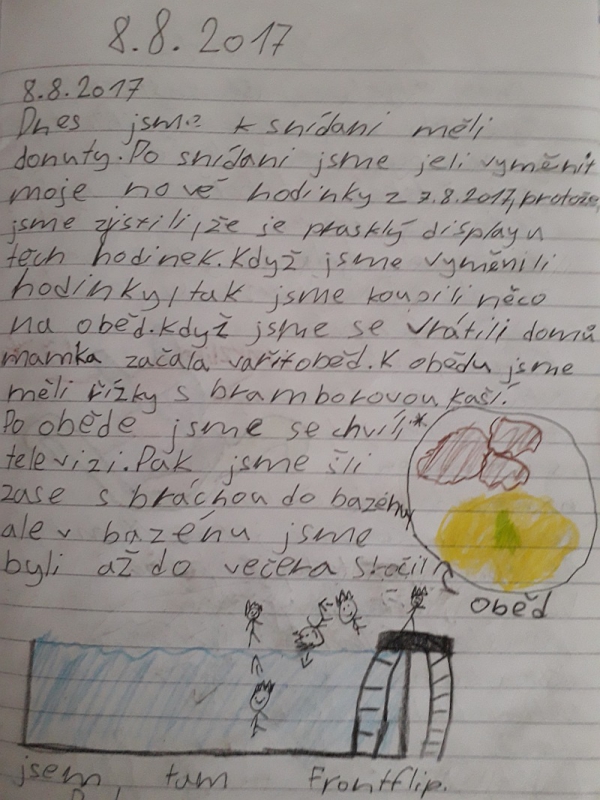 8.8.2017
8.8.2017
Dnes jsme k snídani měli
donuty. Po snídani jsme jeli vyměnit
moje nové hodinky z 7.8.2017, protože,
jsme zjistili, že je prasklý display u
těch hodinek. Když jsme vyměnili
hodinky, tak jsme koupili něco
na oběd. Když jsme se vrátili domů
mamka začala vařit oběd. K obědu jsme
měli řízky s bramborovou kaší.
Po oběde jsme se chvíli *
televizi. Pak jsme šli
zase s bráchou do bazénu,
ale v bazénu jsme
byli až do večera skočil
oběd
jsem tam Frontflip.